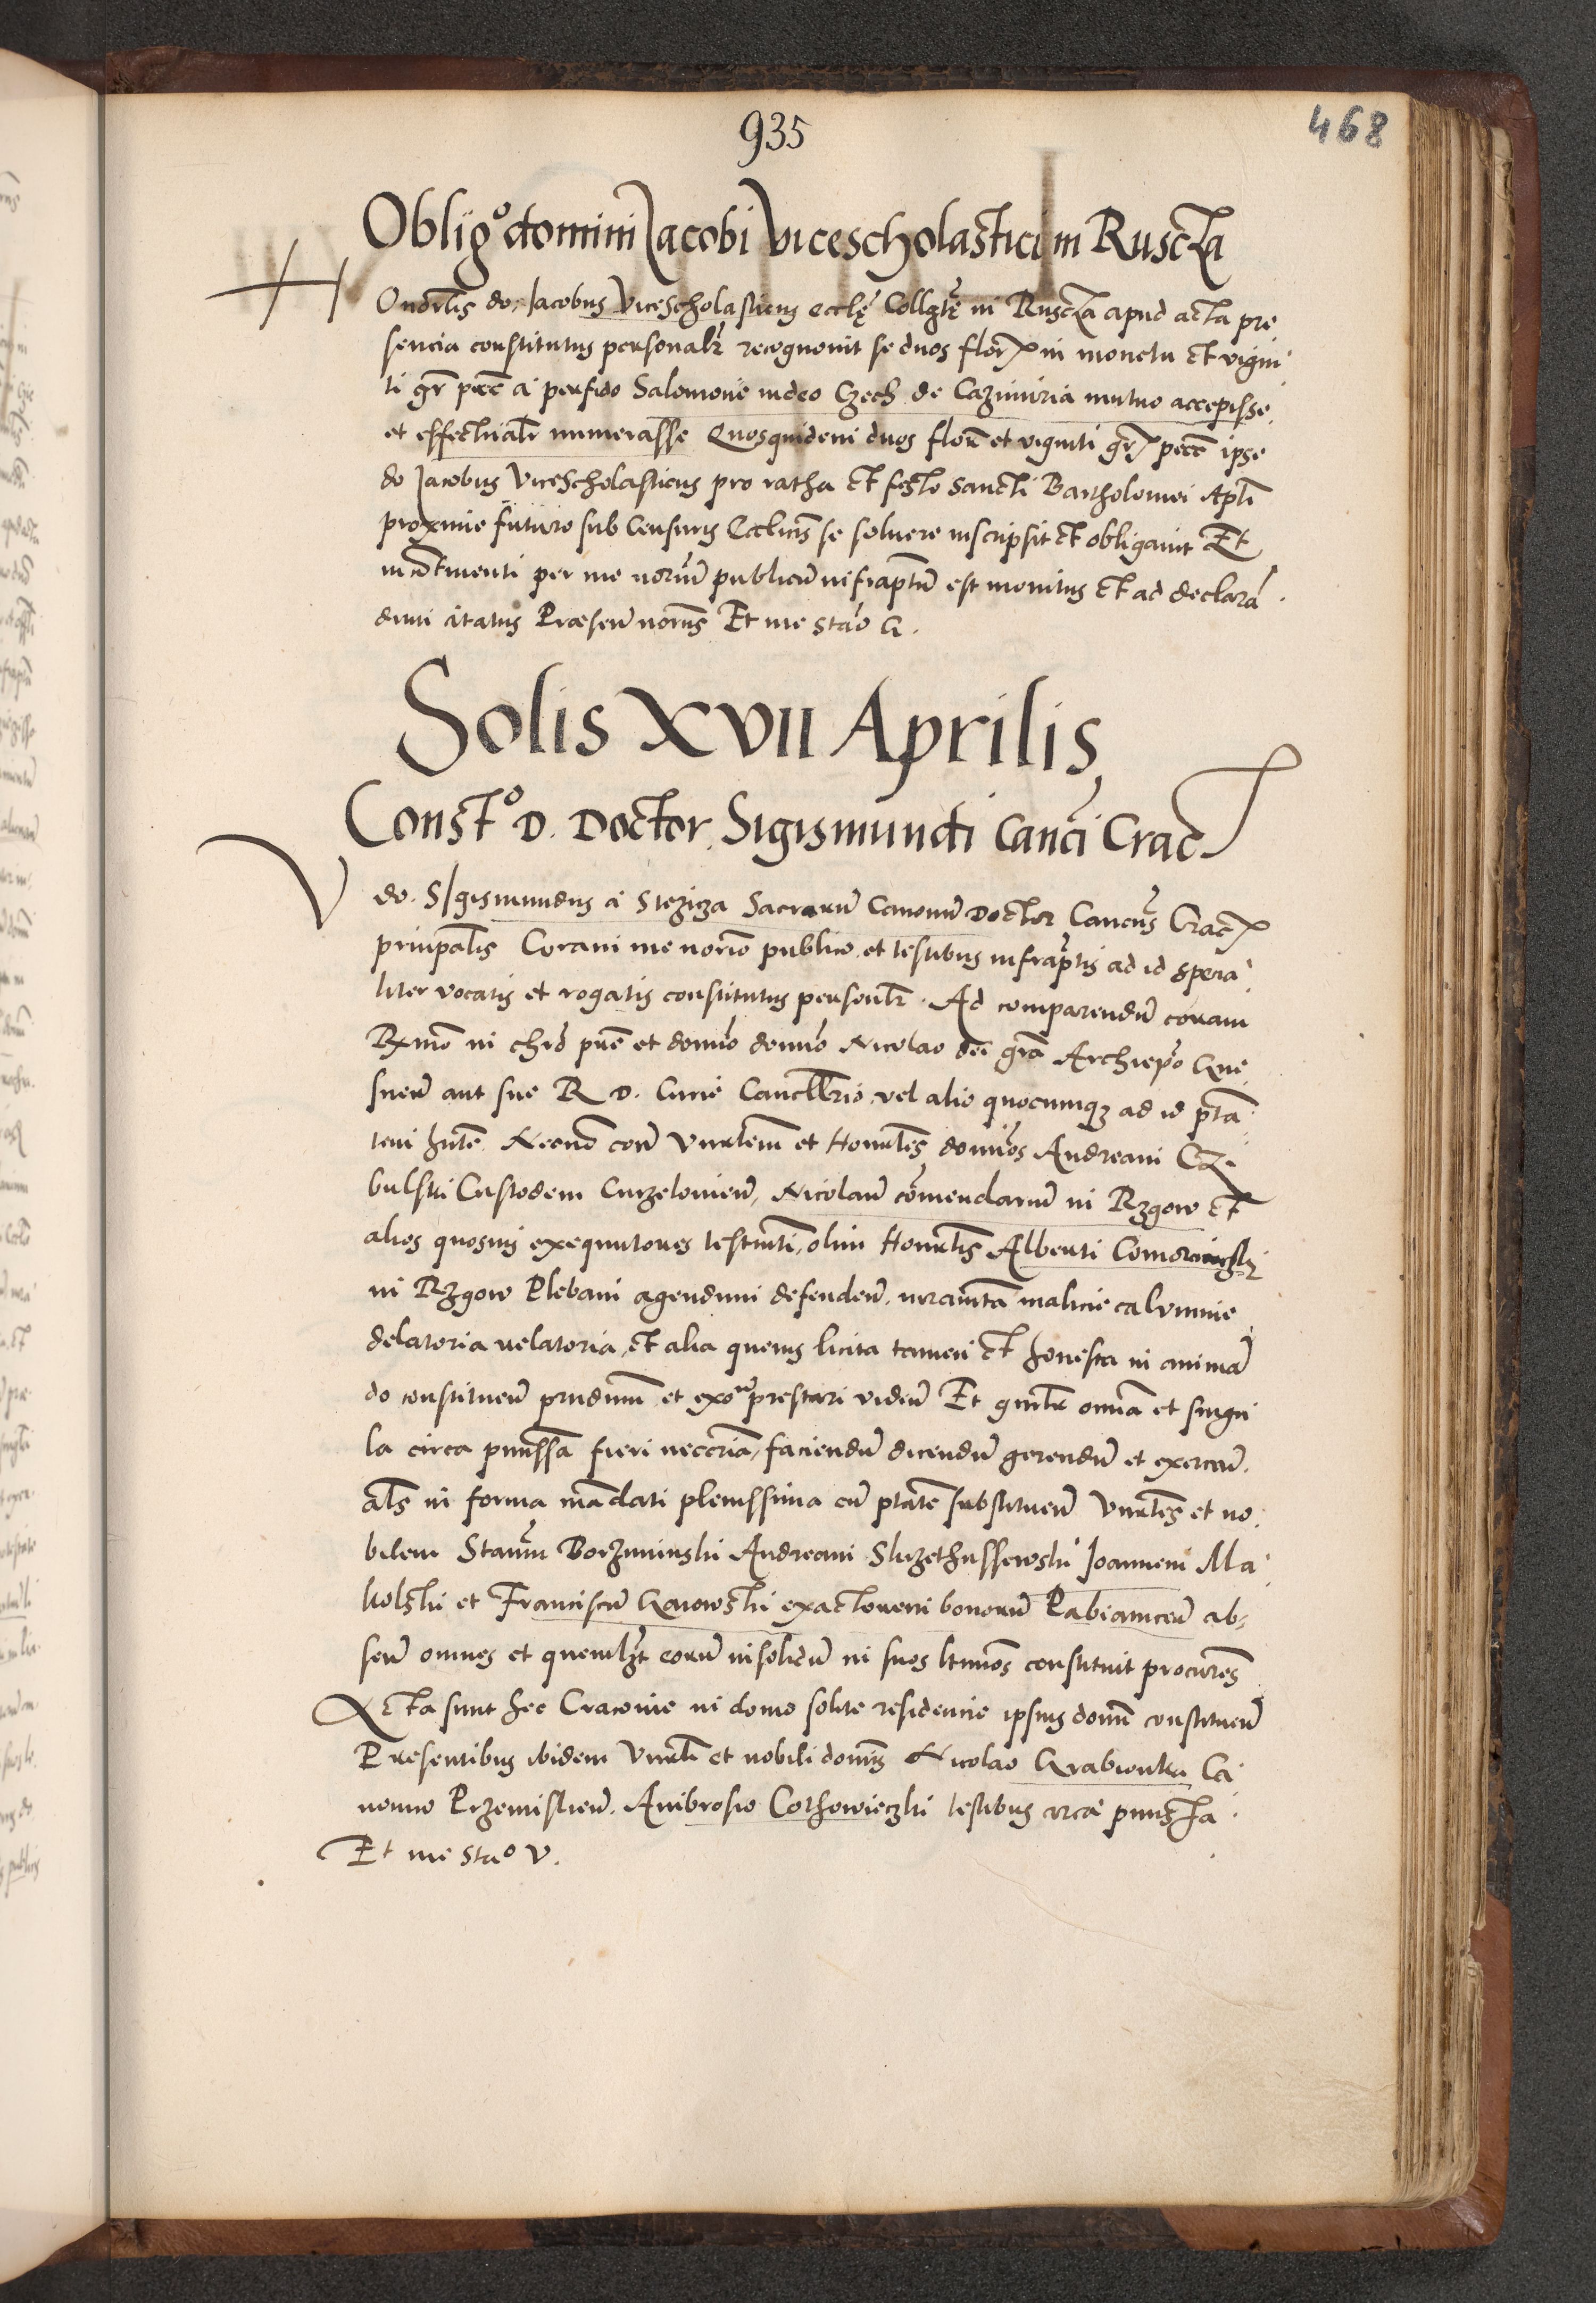 935
468
Obligo domini Jacobi Vicescholastici in Ruscza
Honorlis do. Jacobus Vicescholasticus eccle Collgte in Ruscza apud acta pre
sencia constitutus personalr recognouit se duos flor in moneta et vigin
ti gr pecc a perfido Salomone iudeo Czech de Cazimiria mutuo accepisse
et effectualr numerasse Quosquidem duos flor et viginti gr pecc ipse
do Jacobus Vicescholasticus pro ratha et festo sancti Bartholomei Apli
proxime futuro sub Censuris Ecclicis se soluere inscripsit et obligauit Et
in continenti per me norium publicum infraptum est monitus et ad declaran
dum citatus Praesen noris Et me Stao G.
Solis XVII Aprilis
Consto D. Doctor. Sigismundi Canci Crac
V do. Sigismundus a Stezicza Sacrorum Canonum Doctor Cancus Crac
principalis Coram me norio publico et testibus infraptis ad id specia
liter vocatis et rogatis constitutus personlr. Ad comparendum coram
Rxmo in chro pre et domino domino Nicolao dei gra Archiepo Gne
snen aut sue R D. Curie Cancellrio vel alio quocumque ad id pta
tem hnte Necno con Vnrlem et Honorles dominos Andream Cze
bulski Custodem Curzelouien, Nicolaum comendarium in Rzgow et
alios quosuis exequutores testmti, olim Honorlis Alberti Comor
in Rzgow Plebani agendum defenden. iuramta malicie calumnie
delatoria relatoria, et alia queuis licita tamen et honesta in animam
do constituen prudimm et exo prestari viden Et gnrlr omnia et singu
la circa pmissa fieri neccria, faciendum dicendum gerendum et exercen.
als in forma mandati plenissima cum ptate substituen Vnrles et no
bilem Staum Borzuminski Andream Skrzethussewski Joannem Ma
kolski et Franciscum Gaiowski exactorem bonorum Pabianicen ab
sen omnes et quemlzt eorum insolidum in suos ltimos constituit procures
Acta sunt hec Cracouie in domo solite residencie ipsius domini constituen
Presentibus ibidem Vnrli et nobili dominis Nicolao Grabionka Ca
nonico Przemislien. Ambrosio Cothowieczki testibus circa pmissa
Et me Stao V.